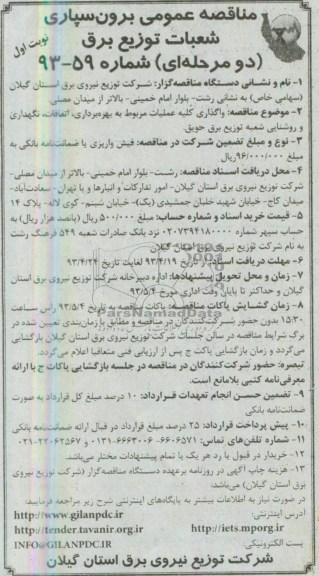 مناقصه عمومی برون‌سپاری
شعبات توزیع برق
(دو مرحله‌ای) شماره ۵۹-۹۳
نوبت اول
۱- نام و نشانی دستگاه مناقصه‌گزار: شرکت توزیع نیروی برق استان گیلان
(سهامی خاص) به نشانی رشت- بلوار امام خمینی- بالاتر از میدان مصلی
۲- موضوع مناقصه: واگذاری کلیه عملیات مربوط به بهره‌برداری، اتفاقات، نگهداری
و روشنایی شعبه توزیع برق حویق.
۳- نوع و مبلغ تضمین شرکت در مناقصه: فیش واریزی یا ضمانت‌نامه بانکی به
مبلغ ۹۶/۰۰۰/۰۰۰ ریال
۴- محل دریافت اسناد مناقصه: رشت- بلوار امام خمینی- بالاتر از میدان مصلی-
شرکت توزیع نیروی برق استان گیلان- امور تدارکات و انبارها و یا تهران - سعادت‌آباد-
میدان کاج- خیابان شهید خلیان جمشیدی (یک)- خیابان شبنم- کوی لاله- پلاک ۱۴
۵- قیمت خرید اسناد و شماره حساب: مبلغ ۵۰۰/۰۰۰ ریال (پانصد هزار ریال) به
حساب سپهر شماره ۰۲۰۷۳۹۴۱۸۰۰۰۰ نزد بانک صادرات شعبه ۵۴۹ فرهنگ رشت
به نام شرکت توزیع نیروی برق استان گیلان
۶- مهلت دریافت اسناد: از تاریخ ۹۳/۴/۱۹ لغایت تاریخ ۹۳/۴/۲۴
۷- زمان و محل تحویل پیشنهادها: اداره دبیرخانه شرکت توزیع نیروی برق استان
گیلان و حداکثر تا پایان وقت اداری مورخ ۹۳/۵/۴
۸- زمان گشایش پاکات مناقصه: پاکات مناقصه به تاریخ ۹۳/۵/۴ راس ساعت
۱۵:۳۰ بدون حضور شرکت‌کنندگان در مناقصه و مطابق با زمان‌بندی تعیین شده در
برگ شرایط مناقصه در سالن جلسات شرکت توزیع نیروی برق استان گیلان بازگشایی
می‌گردد و زمان بازگشایی پاکت ج پس از ارزیابی فنی متعاقبا اعلام می‌گردد.
تبصره: حضور شرکت‌کنندگان در مناقصه در جلسه بازگشایی پاکات ج با ارائه
معرفی‌نامه کتبی بلامانع است.
۹- تضمین حسن انجام تعهدات قرارداد: ۱۰ درصد مبلغ کل قرارداد به صورت
ضمانت‌نامه بانکی
۱۰- پیش پرداخت قرارداد: ۲۵ درصد مبلغ قرارداد در قبال ارائه ضمانت‌نامه بانکی
۱۱- شماره تلفن‌های تماس: ۶۶۰۶۵۷۱- ۶۶۶۳۰۰۶-۰۱۳۱ و ۲۲۰۶۲۵۶۷-۰۲۱
۱۲- خریدار در قبول یا رد هر یک یا تمام پیشنهادات مختار می‌باشد.
۱۳- هزینه چاپ آگهی در روزنامه برعهده دستگاه مناقصه‌گزار (شرکت توزیع نیروی
برق استان گیلان) می‌باشد.
در صورت نیاز به اطلاعات بیشتر به پایگاه‌های اینترنتی شرح زیر مراجعه فرمایید:
آدرس اینترنتی: http://www.gilanpdc.ir
http://iets.mporg.ir http://tender.tavanir.org.ir
پست الکترونیکی: INFO@GILANPDC.IR
شرکت توزیع نیروی برق استان گیلان
ParsNamadData